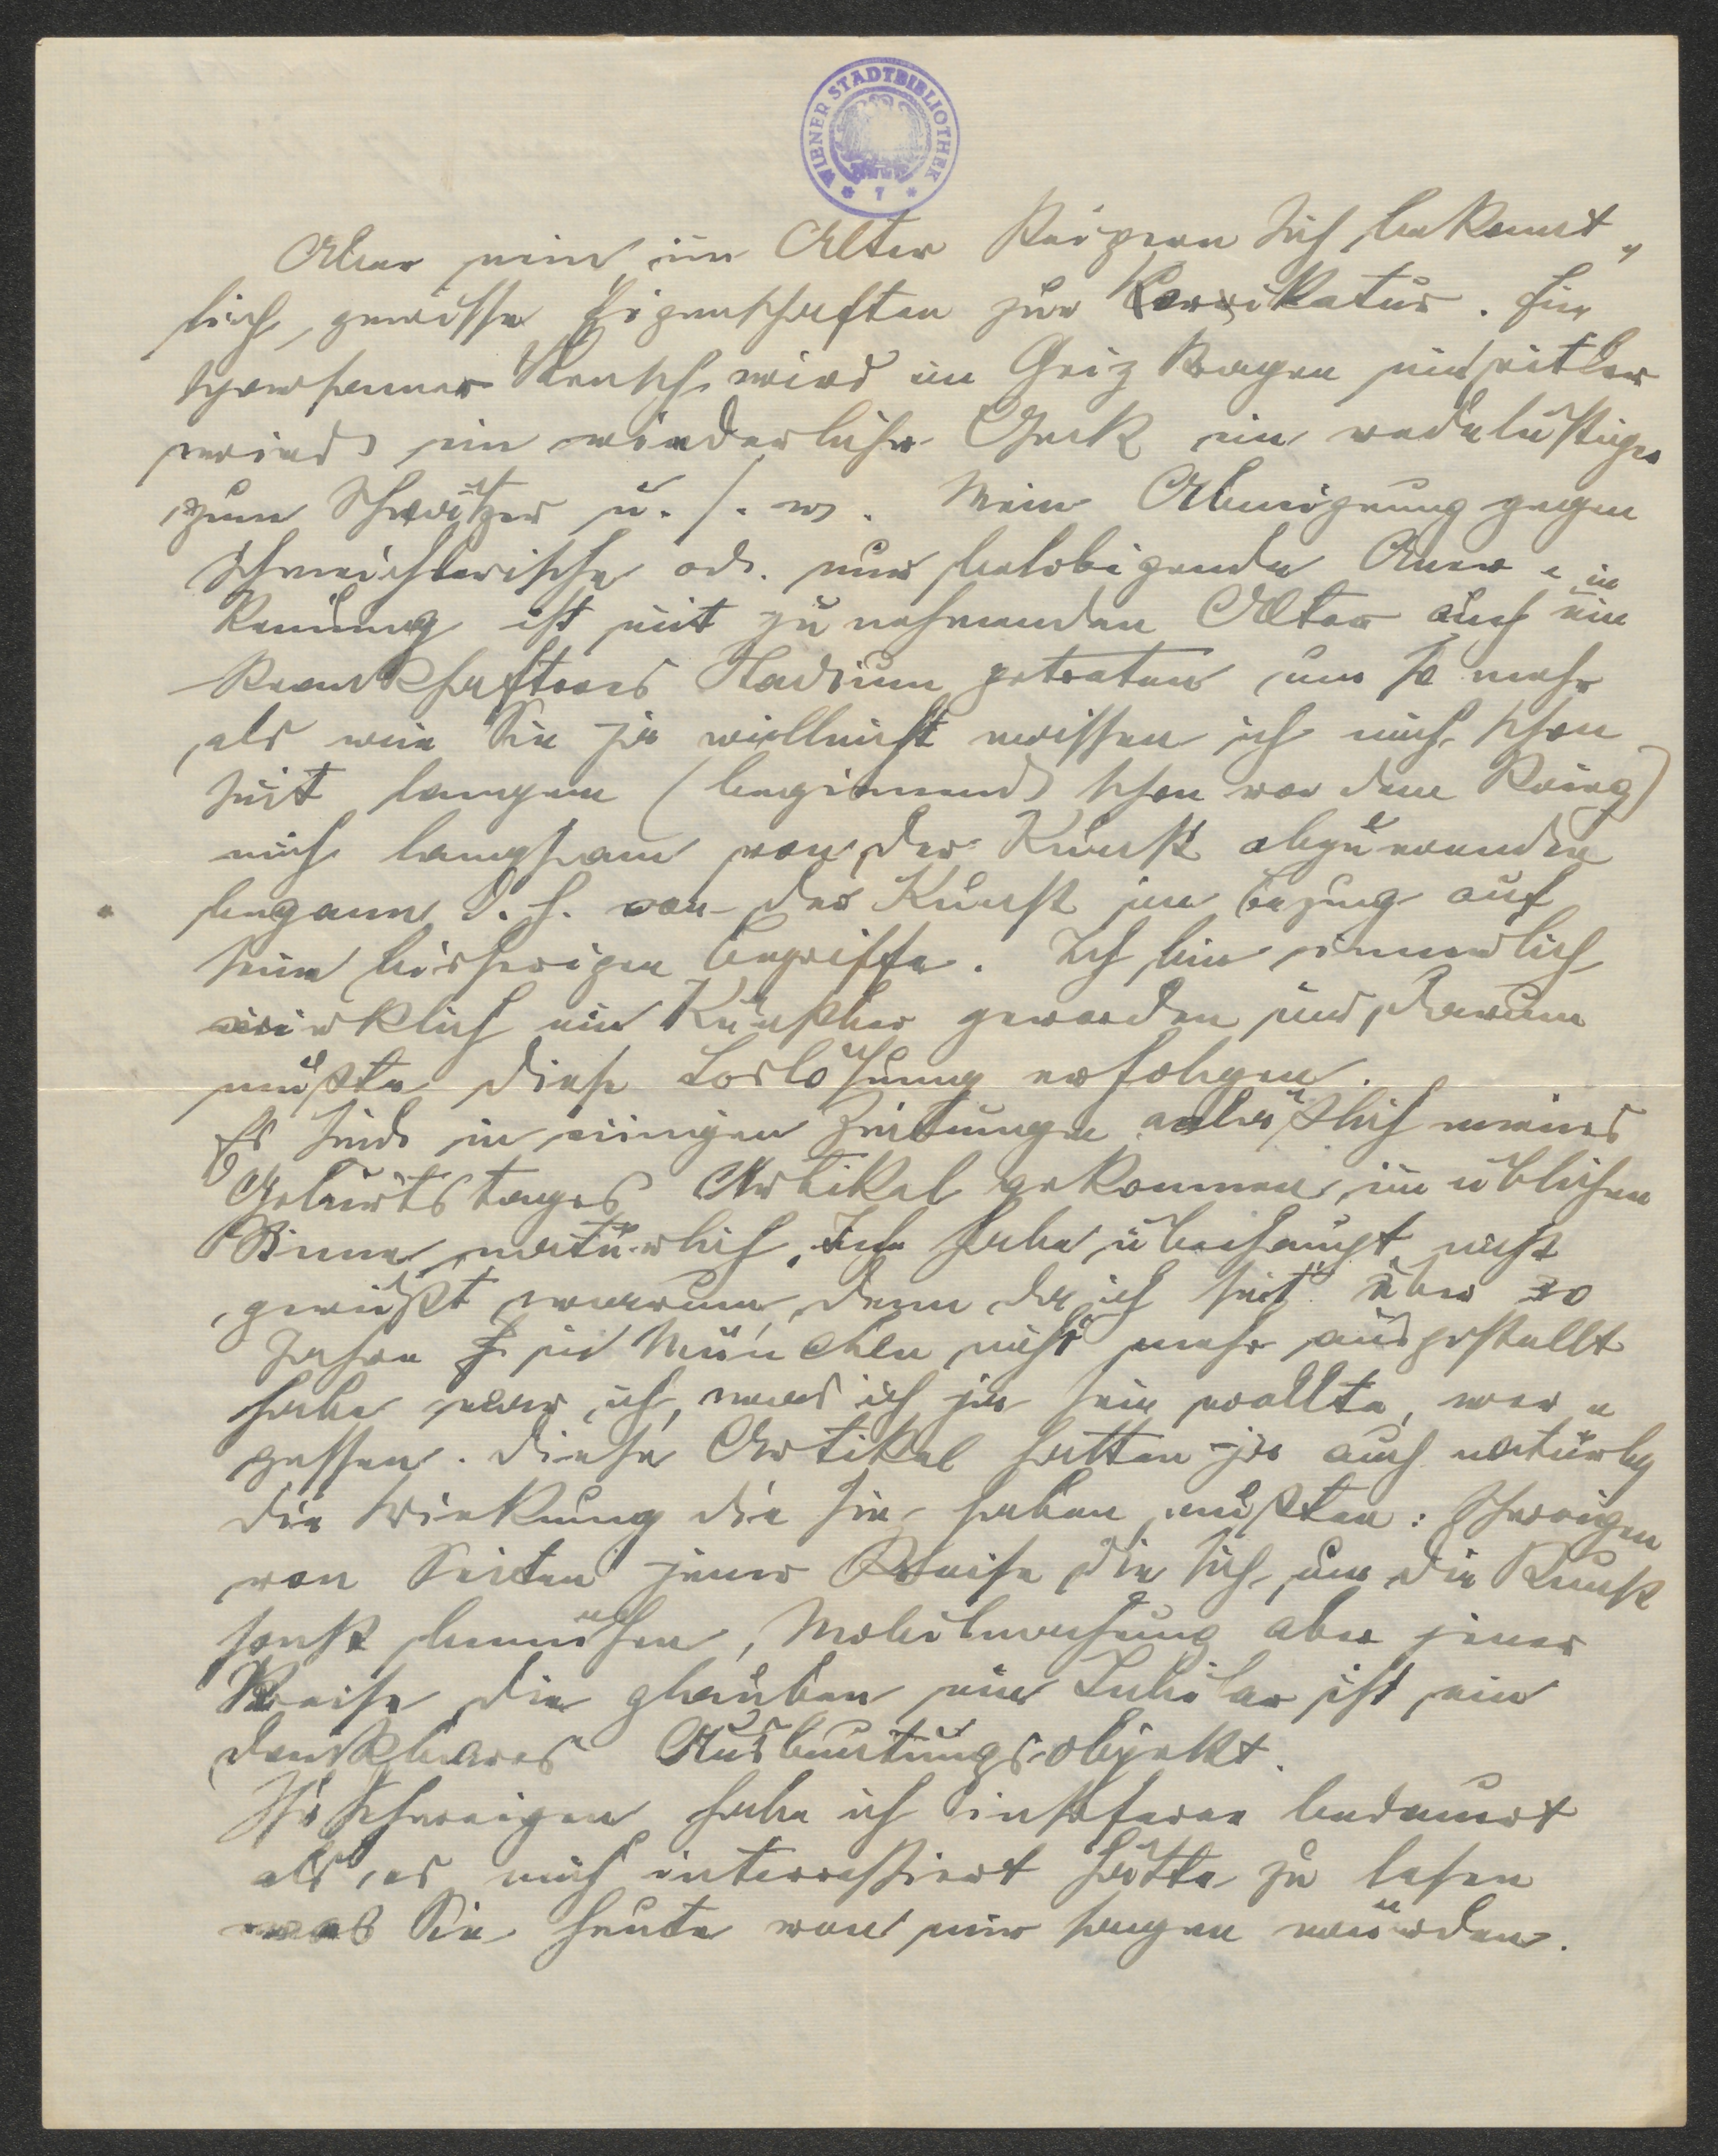 WIENER STADTBIBLIOTHEK
Aber nun im Alter steigern sich bekannt„
lich gewisse Eigenschaften zur Karrikatur. Ein
sparsamer Mensch wird im Geiz
wird ein widerlicher Geck ein redelustiger
zum Schwätzer u. s. w. Meine Abneigung gegen
schmeichlerische od. nur belobigende Aner„
kennung ist mit zunehmenden Alter auch in ein
krankhafteres Stadium getreten um so mehr
als wie Sie ja vielleicht wissen ich mich schon
seit langem (beginnend schon vor dem Krieg)
mich langsam von der Kunst abzuwenden
begann d. h. von der Kunst in bezug auf
seine bisherigen Begriffe. Ich bin innerlich
wirklich ein Künstler geworden und darum
mußte diese Loslösung erfolgen.
Es sind in einigen Zeitungen anläßlich meines
Geburtstages Artikel gekommen, im üblichen
Sinne natürlich. Ich habe überhaupt nicht
gewußt warum, denn da ich seit über 20
Jahren in München nicht mehr ausgestellt
habe war ich, was ich ja sein wollte, ver„
gessen. Diese Artikel hatten ja auch natürlich
die Wirkung die sie haben mußten: Schweigen
von Seiten jener Kreise die sich um die Kunst
sonst bemühen, Mobilmachung aber jener
Kreise die glauben ein Jubilar ist ein
dankbares Ausbeutungsobjekt.
Ihr Schweigen habe ich insoferne bedauert
als es mich interressiert hätte zu lesen
was Sie heute von mir sagen würden.